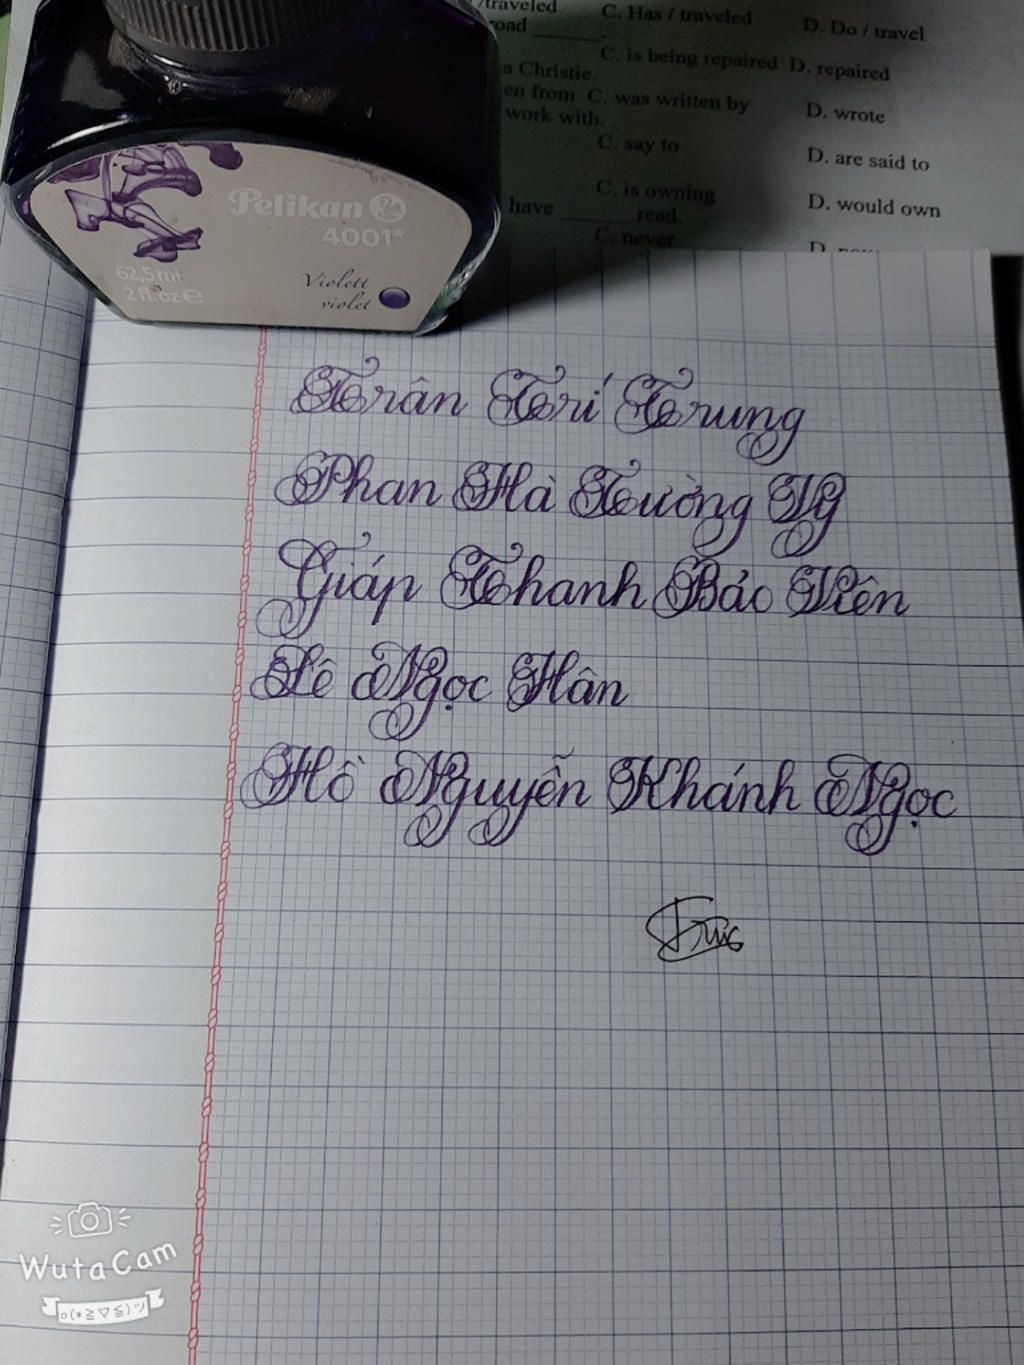 /traveled C. Has / traveled D. Do / travel
road ______.
C. is being repaired D. repaired
a Christie.
en from C. was written by D. wrote
work with.
C. say to D. are said to
C. is owning D. would own
have ______ read.
C. never
Pelikan
4001®
62,5 ml
2 fl. oz e
Violett
violet
Trân Trí Trung
Phan Hà Tường Vy
Giáp Thanh Bảo Viên
Lê Ngọc Hân
Hồ Nguyễn Khánh Ngọc
WutaCam
o(*≧▽≦)ツ